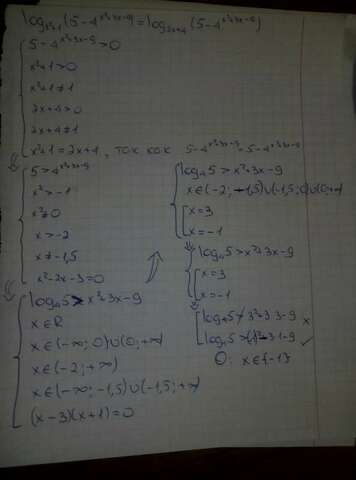 log_{x²+1}(5-4^{x²+3x-9}) = log_{2x+4}(5-4^{x²+3x-9})
5-4^{x²+3x-9}>0
x²+1>0
x²+1≠1
2x+4>0
2x+4≠1
x²+1=2x+4, так как 5-4^{x²+3x-9}=5-4^{x²+3x-9}
5>4^{x²+3x-9}
x²>-1
x²≠0
x>-2
x≠-1,5
x²-2x-3=0
log₄5>x²+3x-9
x∈R
x∈(-∞; 0)∪(0; +∞)
x∈(-2; +∞)
x∈(-∞; -1,5)∪(-1,5; +∞)
(x-3)(x+1)=0
log₄5>x²+3x-9
x∈(-2; -1,5)∪(-1,5; 0)∪(0; +∞)
x=3
x=-1
log₄5>x²+3x-9
x=3
x=-1
log₄5>3²+3·3-9 ×
✓
O: x∈{-1}